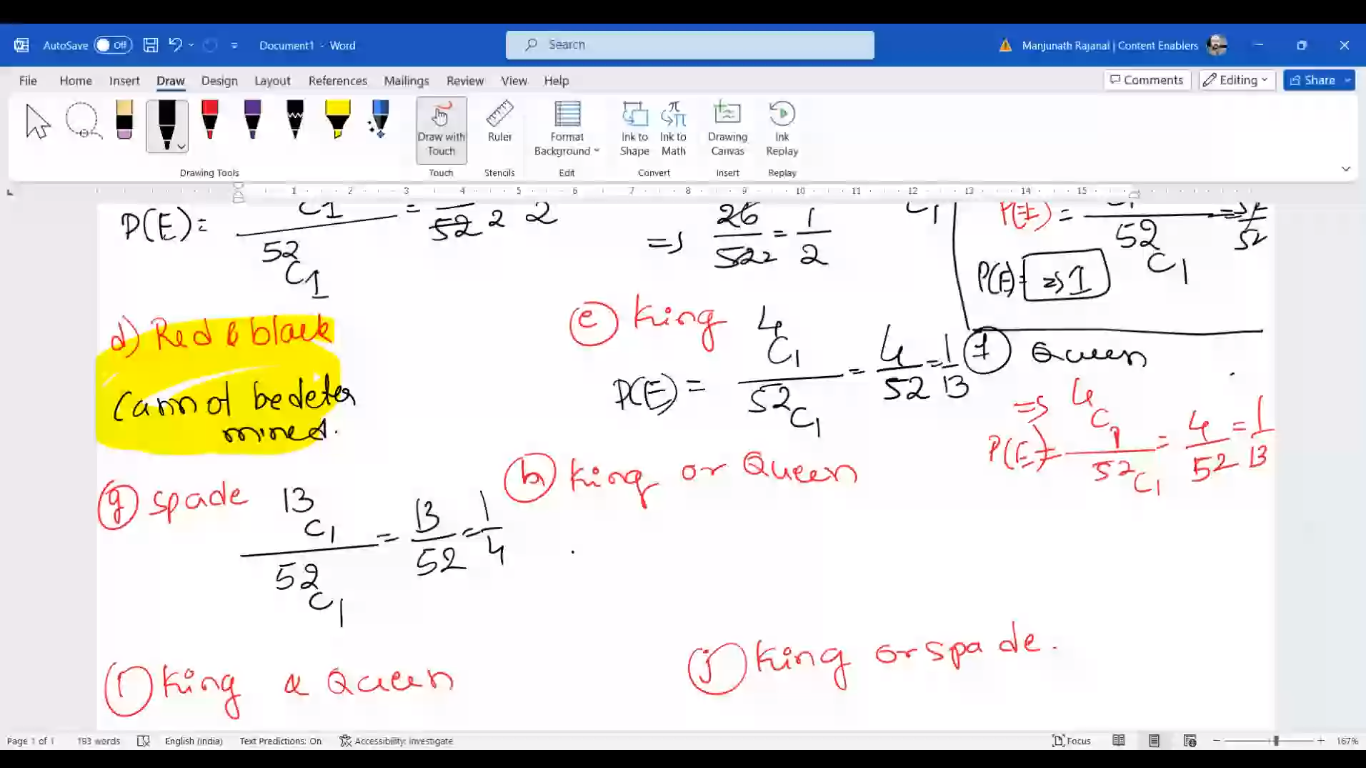 AutoSave Off Document1 - Word Search Manjunath Rajanal | Content Enablers
File Home Insert Draw Design Layout References Mailings Review View Help Comments Editing Share
Draw with Touch Ruler Format Background Ink to Shape Ink to Math Drawing Canvas Ink Replay
Drawing Tools Touch Stencils Edit Convert Insert Replay
1 2 3 4 5 6 7 8 9 10 11 12 13 14 15
P(E)= C1 / 52C1 = /52 2 2
=> 26/522 = 1/2
C1
P(E) = C1 / 52C1 => 52/52
P(E) => 1
d) Red & black
Cannot be deter
mined.
e) King
P(E) = 4C1 / 52C1 = 4/52 = 1/13
f) Queen
=> P(E) = 4C1 / 52C1 = 4/52 = 1/13
g) spade 13C1 / 52C1 = 13/52 = 1/4
h) King or Queen
i) King & Queen
j) King or spade.
Page 1 of 1 193 words English (India) Text Predictions: On Accessibility: Investigate Focus 167%